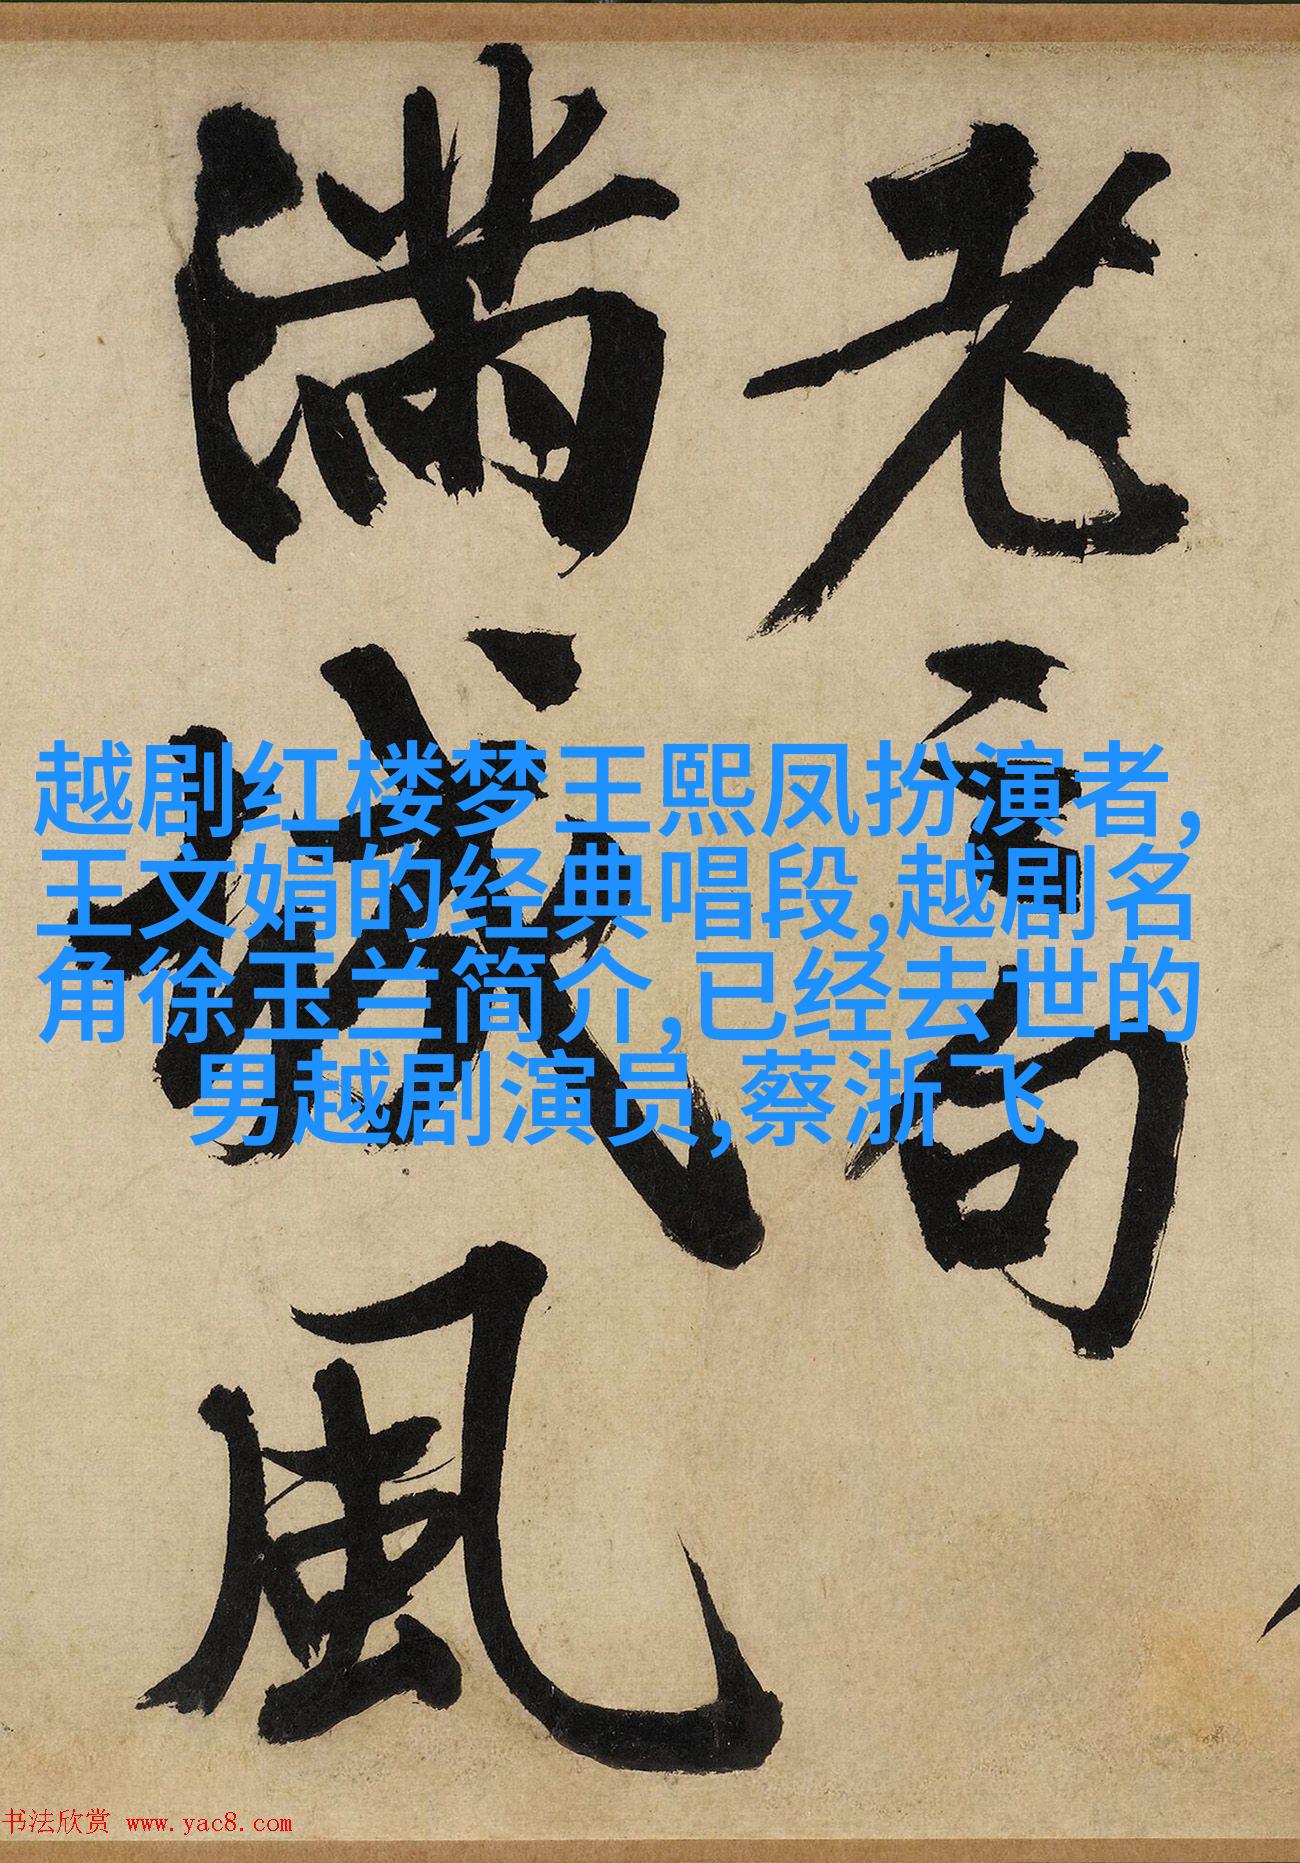 老句
滿城風
越剧红楼梦王熙凤扮演者,
王文娟的经典唱段,越剧名
角徐玉兰简介,已经去世的
男越剧演员,蔡浙飞
书法欣赏 www.yac8.com